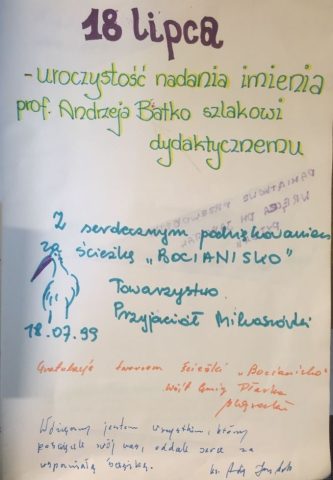 18 lipca
- uroczystość nadania imienia
prof. Andrzeja Batko szlakowi
dydaktycznemu
Z serdecznym podziękowaniem
za ścieżkę „BOCIANISKO”
Towarzystwo
Przyjaciół Mikaszówki
18.07.99
Gratulacje twórcom ścieżki „Bocianisko”
Wójt Gminy Płaska
Wdzięczny jestem wszystkim, którzy
poświęcili swój czas, oddali serce za
wspaniałą ścieżkę.
ks.